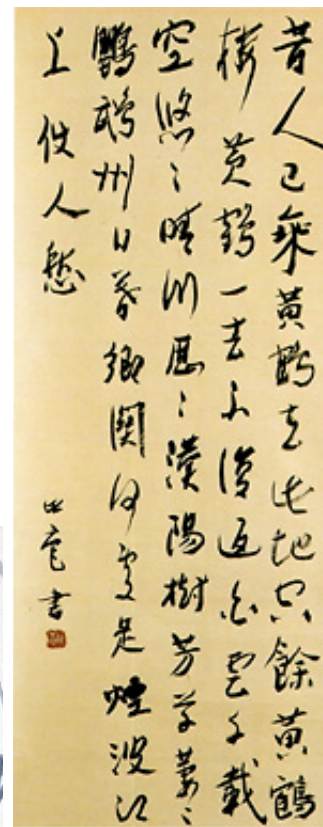 昔人已乘黃鶴去此地只餘黃鶴
樓黃鶴一去不復返白雲千載
空悠〻晴川歷〻漢陽樹芳草萋〻
鸚鵡州日暮鄉關何處是煙波江
上使人愁
書